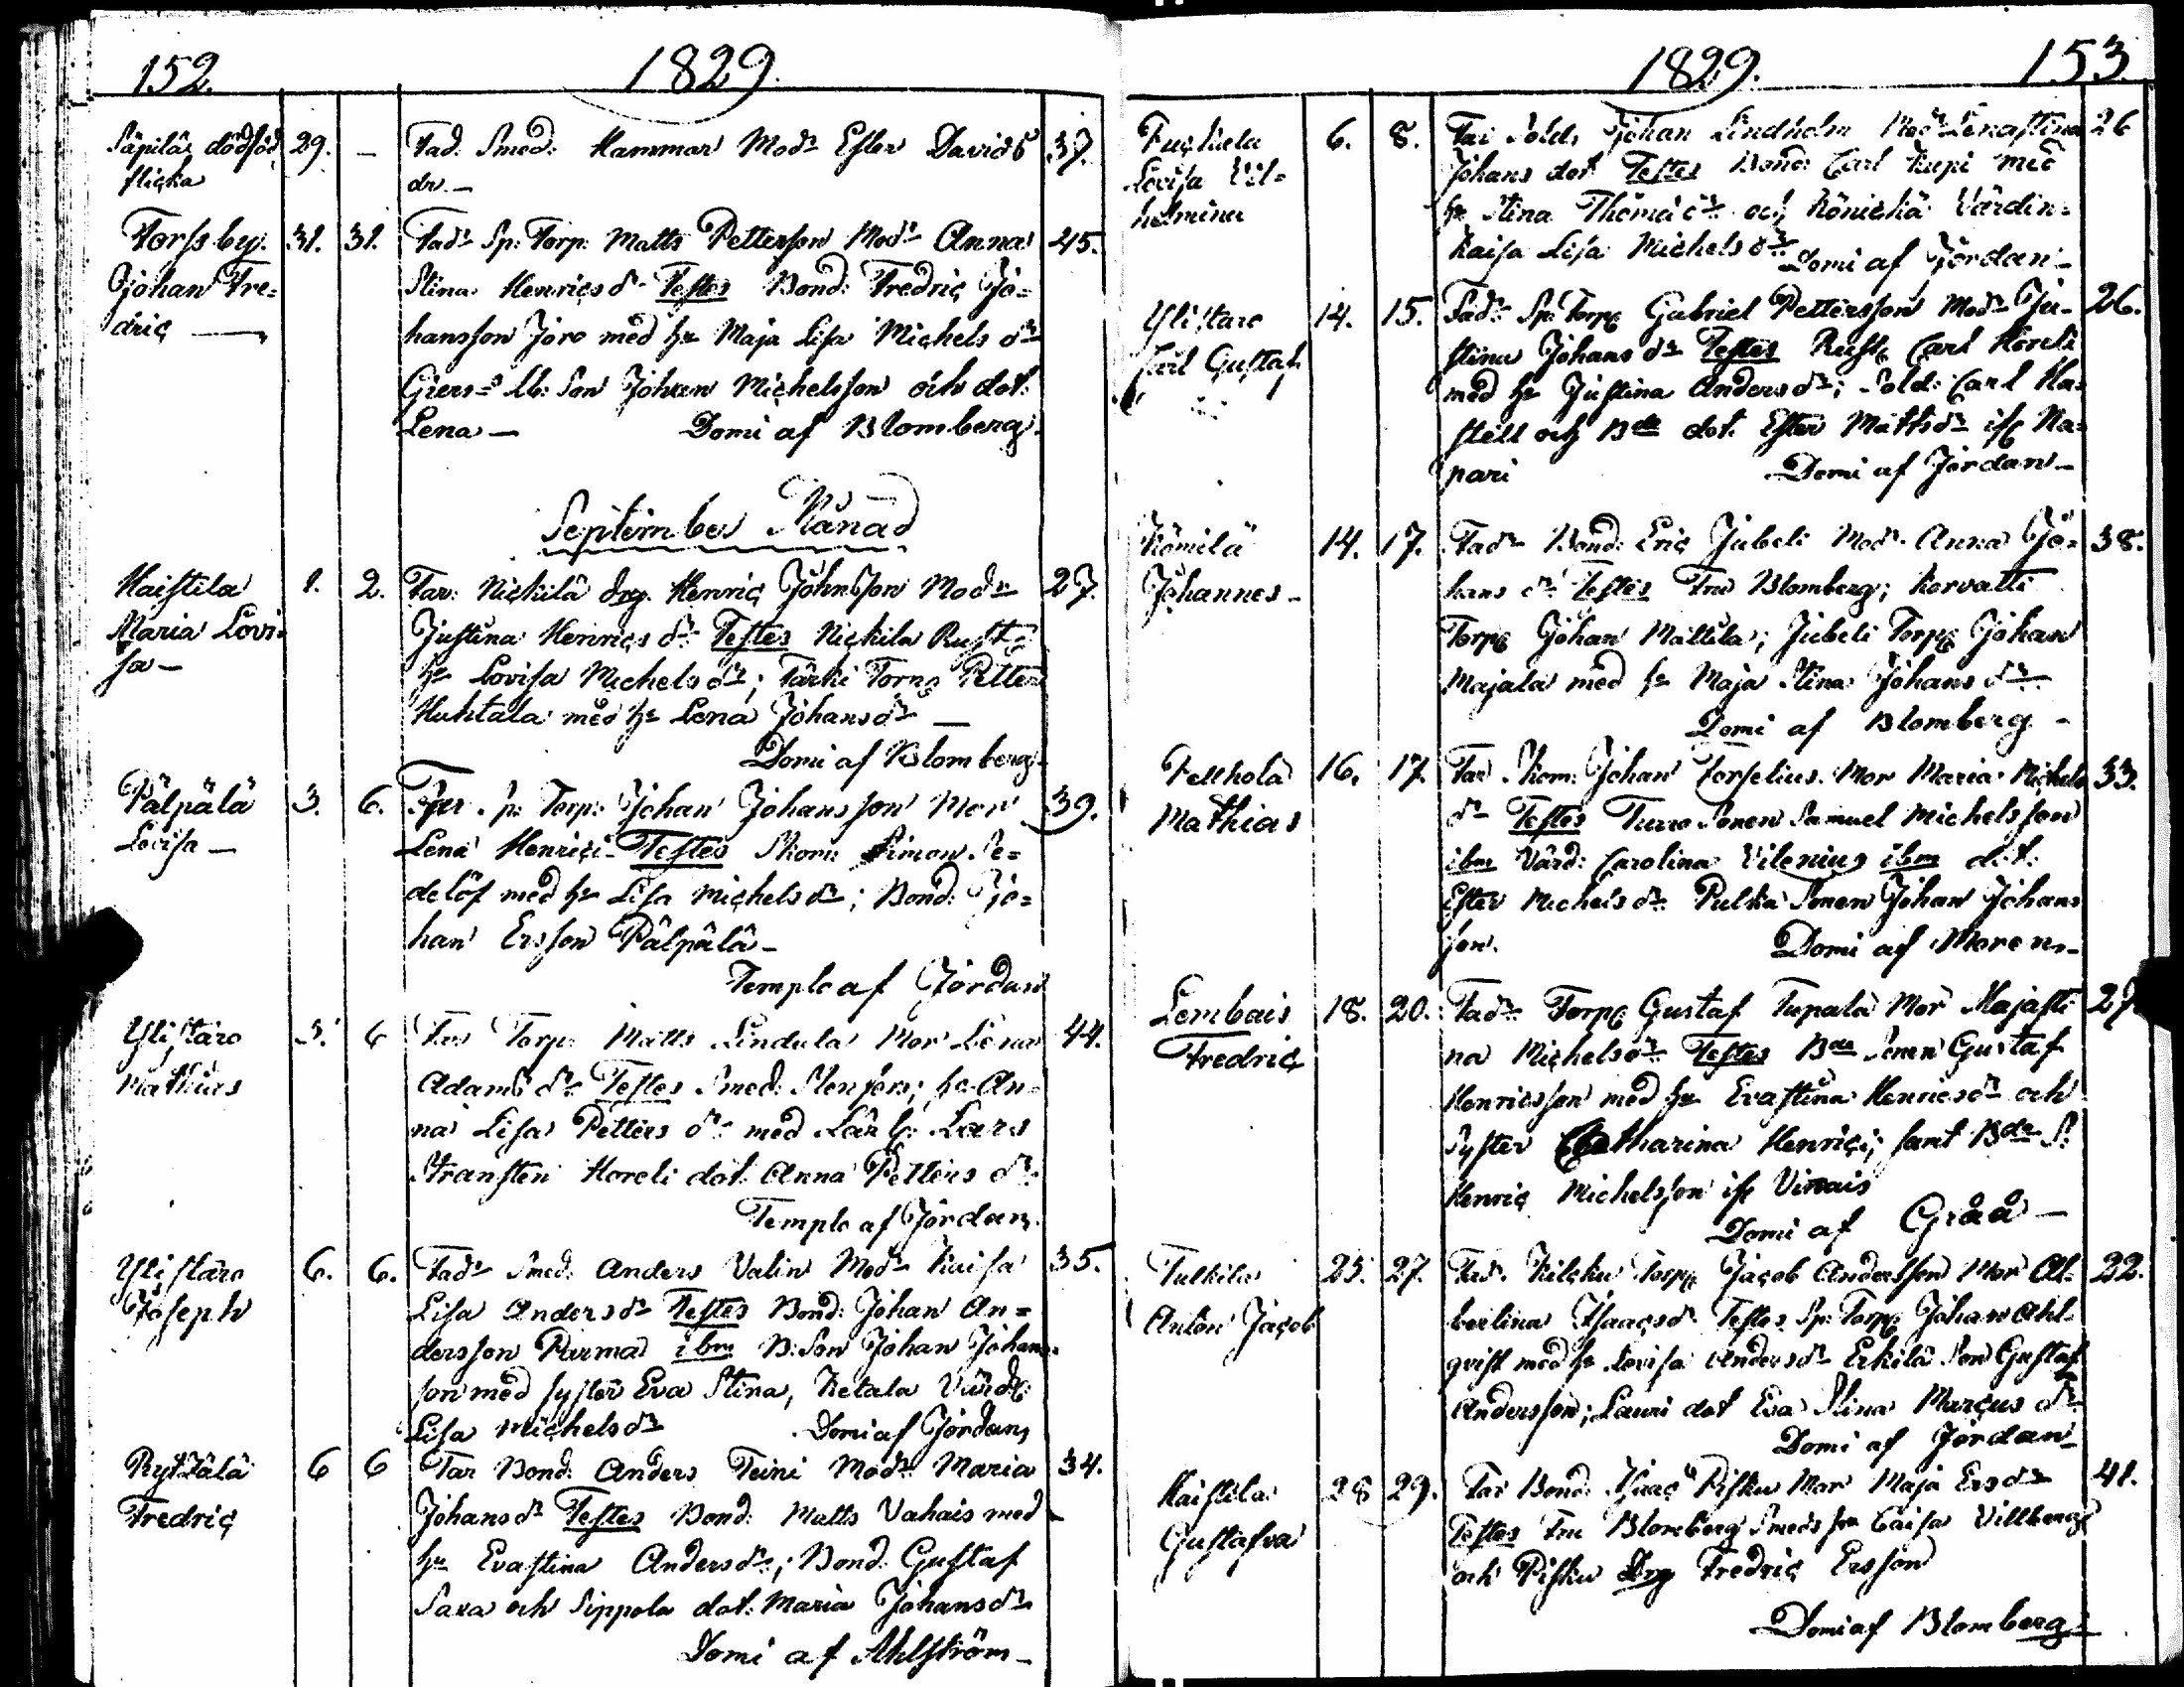 152.
1829.
Säpilä dödföd 29. — Fad. Smed. Hammar Modr Ester Davids 37.
flicka dr. —
Torsby. 31. 31. Fadr Sp: Torp: Matts Petterson Modr Anna 45.
Johan Fre= Stina Henrics dr Testes Bond: Fredric Jo=
dric — hansson Joro med hu Maja Lisa Michels dr
Giers= Lb: Son Johan Michelsson och dot:
Lena — Domi af Blomberg.
September Månad
Haistila 1. 2. Far: Nickilä drg. Henric Johnsson Modr 27.
Maria Lovi= Justina Henrics dr Testes Nickila Rust:
sa — hu Lovisa Michels dr; Tärki Torp Petter
Huhtala med hu Lena Johans dr —
Domi af Blomberg.
Pälpälä 3. 6. Far Sp: Torp: Johan Johansson Mor 39.
Lovisa — Lena Henrici Testes Skom: Simon Se=
delöf med hu Lisa Michels dr; Bond: Jo=
han Ersson Pälpälä —
Templo af Jordan
Ylistaro 3. 6 Far Torp: Matts Lindula Mor Lena 44.
Mathias Adams dr Testes Smed. Stenfors; hu An=
na Lisa Petters dr med Lars
Stransten Horeli dot: Anna Petters dr.
Templo af Jordan.
Ylistaro 6. 6. Fadr Smed: Anders Valin Modr Kaisa 35.
Joseph Lisa Anders dr Testes Bond: Johan An=
dersson Parma ibm B: Son Johan Johans=
son med syster Eva Stina, Ketala Värd:
Lisa Michels dr Domi af Jordan
Rytsälä 6 6 Far Bond: Anders Teini Modr Maria 34.
Fredric Johans dr Testes Bond: Matts Vahais med
hu Evastina Anders dr; Bond: Gustaf
Saxa och Sippola dot: Maria Johans dr
Domi af Ahlström —
1829.
153
6. 8. Far Sold: Johan Lindholm Modr Lenastina 26
Lovisa Vil= Johans dot Testes Bond: Carl Kupi med
helmina hu Stina Thomæ dr och Könickä Värdin:
Kaisa Lisa Michels dr Domi af Jordan —
Ylistaro 14. 15. Fadr Sp: Torp Gabriel Pettersson Modr Ju= 26.
Carl Gustaf stina Johans dr Testes Rust: Carl Horeli
med hu Justina Anders dr; Sold: Carl Ha=
stell och Bde dot. Ester Matts dr ifr Na=
pari Domi af Jordan —
Kömilä 14. 17. Fadr Bond: Eric Jubeli Modr Anna Jo= 38.
Johannes — hans dr Testes Fru Blomberg; Korvatti
Torp Johan Mattila; Jubeli Torp Johan
Majala med hu Maja Stina Johans dr
Domi af Blomberg —
Pelthola 16. 17. Far Skom: Johan Forselius Mor Maria Michels 33.
Mathias dr Testes Turro Sonen Samuel Michelsson
ibm Värd: Carolina Vilenius ibm dot:
Ester Michels dr Pulka Sonen Johan Johans
son. Domi af Moren —
Lembais 18. 20. Fadr Torp Gustaf Tupala Mor Majasti 27
Fredric na Michels dr Testes Bde Sonen Gustaf
Henricsson med hu Evastina Henrics dr och
Syster Catharina Henrici; samt Bde S:
Henric Michelsson ifr Vinais
Domi af Gråå —
Tulkila 25. 27. Far Torp Jacob Andersson Mor Al= 22.
Anton Jacob bertina Isaacs dr Testes Sp: Torp Johan Ahl=
qvist med hu Lovisa Anders dr Erkilä Son Gustaf
Andersson; Lauri dot Eva Stina Marcus dr
Domi af Jordan —
Haistila 28 29. Far Bond: Isaac Pisku Mor Maja Ers dr 41.
Gustafva Testes Fru Blomberg Smeds hu Caisa Villberg
och Pisku Drg Fredric Ersson
Domi af Blomberg —